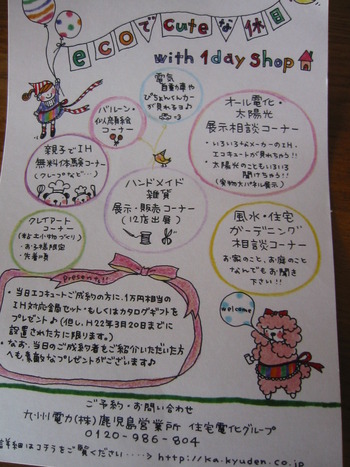 ecoでcuteな休日
with 1day shop
電気
自動車や
ぴちょんくんカー
が見れるョ♪
バルーン・
似顔絵
コーナー
オール電化・
太陽光
展示相談コーナー
・いろいろなメーカーのIH、
エコキュートが見れちゃう!!
・太陽光のこともいろいろ
聞けちゃう!!
(実物大パネル展示)
親子でIH
無料体験コーナー
(クレープなど…)
ハンドメイド
雑貨
展示・販売コーナー
(12店出展)
クレイアート
コーナー
(粘土小物づくり)
・お子様限定
・先着順
風水・住宅
ガーデニング
相談コーナー
お家のこと、お庭のこと
なんでもお聞き
下さい!!
Present!!
・当日エコキュートご成約の方に、1万円相当の
IH対応鍋セット・もしくはカタログギフトを
プレゼント♪(但し、H22年3月20日までに
設置された方に限ります。)
・なお、当日のご成約者をご紹介いただいた方
へも素敵なプレゼントがございます♪
welcome
ご予約・お問い合わせ
九州電力(株)鹿児島営業所 住宅電化グループ
0120-986-804
詳細はコチラをご覧ください····→ http://ka.kyuden.co.jp